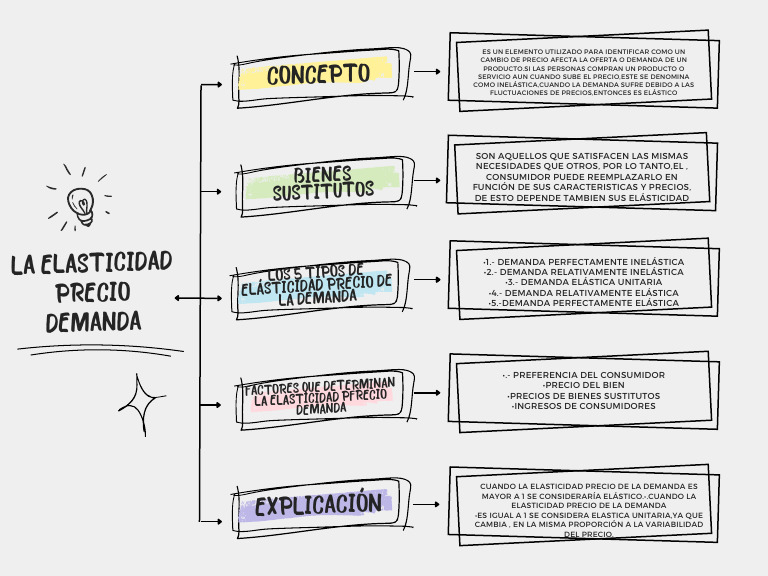 LA ELASTICIDAD
PRECIO
DEMANDA
CONCEPTO
ES UN ELEMENTO UTILIZADO PARA IDENTIFICAR COMO UN
CAMBIO DE PRECIO AFECTA LA OFERTA O DEMANDA DE UN
PRODUCTO.SI LAS PERSONAS COMPRAN UN PRODUCTO O
SERVICIO AUN CUANDO SUBE EL PRECIO,ESTE SE DENOMINA
COMO INELÁSTICA,CUANDO LA DEMANDA SUFRE DEBIDO A LAS
FLUCTUACIONES DE PRECIOS,ENTONCES ES ELÁSTICO
BIENES
SUSTITUTOS
SON AQUELLOS QUE SATISFACEN LAS MISMAS
NECESIDADES QUE OTROS, POR LO TANTO,EL ,
CONSUMIDOR PUEDE REEMPLAZARLO EN
FUNCIÓN DE SUS CARACTERISTICAS Y PRECIOS,
DE ESTO DEPENDE TAMBIEN SUS ELÁSTICIDAD
LOS 5 TIPOS DE
ELÁSTICIDAD PRECIO DE
LA DEMANDA
•1.- DEMANDA PERFECTAMENTE INELÁSTICA
•2.- DEMANDA RELATIVAMENTE INELÁSTICA
•3.- DEMANDA ELÁSTICA UNITARIA
•4.- DEMANDA RELATIVAMENTE ELÁSTICA
•5.-DEMANDA PERFECTAMENTE ELÁSTICA
FACTORES QUE DETERMINAN
LA ELASTICIDAD PFRECIO
DEMANDA
•.- PREFERENCIA DEL CONSUMIDOR
•PRECIO DEL BIEN
•PRECIOS DE BIENES SUSTITUTOS
•INGRESOS DE CONSUMIDORES
EXPLICACIÓN
CUANDO LA ELASTICIDAD PRECIO DE LA DEMANDA ES
MAYOR A 1 SE CONSIDERARÍA ELÁSTICO.-.CUANDO LA
ELASTICIDAD PRECIO DE LA DEMANDA
•ES IGUAL A 1 SE CONSIDERA ELASTICA UNITARIA,YA QUE
CAMBIA , EN LA MISMA PROPORCIÓN A LA VARIABILIDAD
DEL PRECIO,